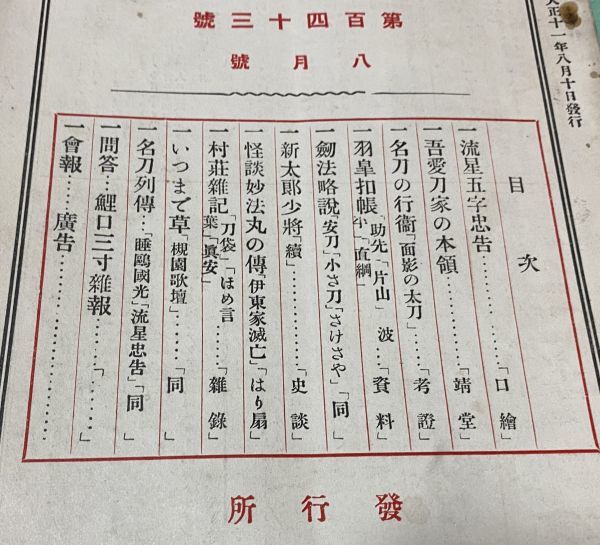 大正十一年八月十日發行
第百四十三號
八月號
目次
一流星五字忠告………「口繪」
一吾愛刀家の本領………「靖堂」
一名刀の行衞「面影の太刀」……「考證」
一羽皐扣帳「助先」「片山」波…「資料」
平」「直綱」
一劒法略說「安刀」「小さ刀」「さけさや」「同」
一新太郎少將「續」………「史談」
一怪談妙法丸の傳「伊東家滅亡」「はり扇」
一村莊雜記「刀袋」「ほめ言……「雜錄」
葉」「眞安」
一いつまで草「槻園歌壇」……「同」
一名刀列傳…「睡鷗國光」「流星忠告」「同」
一問答…鯉口三寸雜報……「………」
一會報……廣告………………
發行所